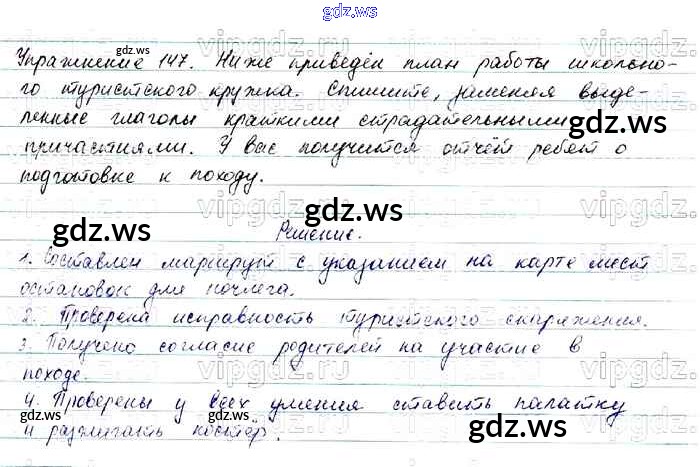 gdz.ws
Упражнение 147. Ниже приведён план работы школьно-
го туристского кружка. Спишите, заменяя выде-
ленные глаголы краткими страдательными
причастиями. У вас получится отчёт ребят о
подготовке к походу.
Решение.
1. Составлен маршрут с указанием на карте мест
остановок для ночлега.
2. Проверена исправность туристского снаряжения.
3. Получено согласие родителей на участие в
походе.
4. Проверены у всех умения ставить палатку
и разжигать костёр.